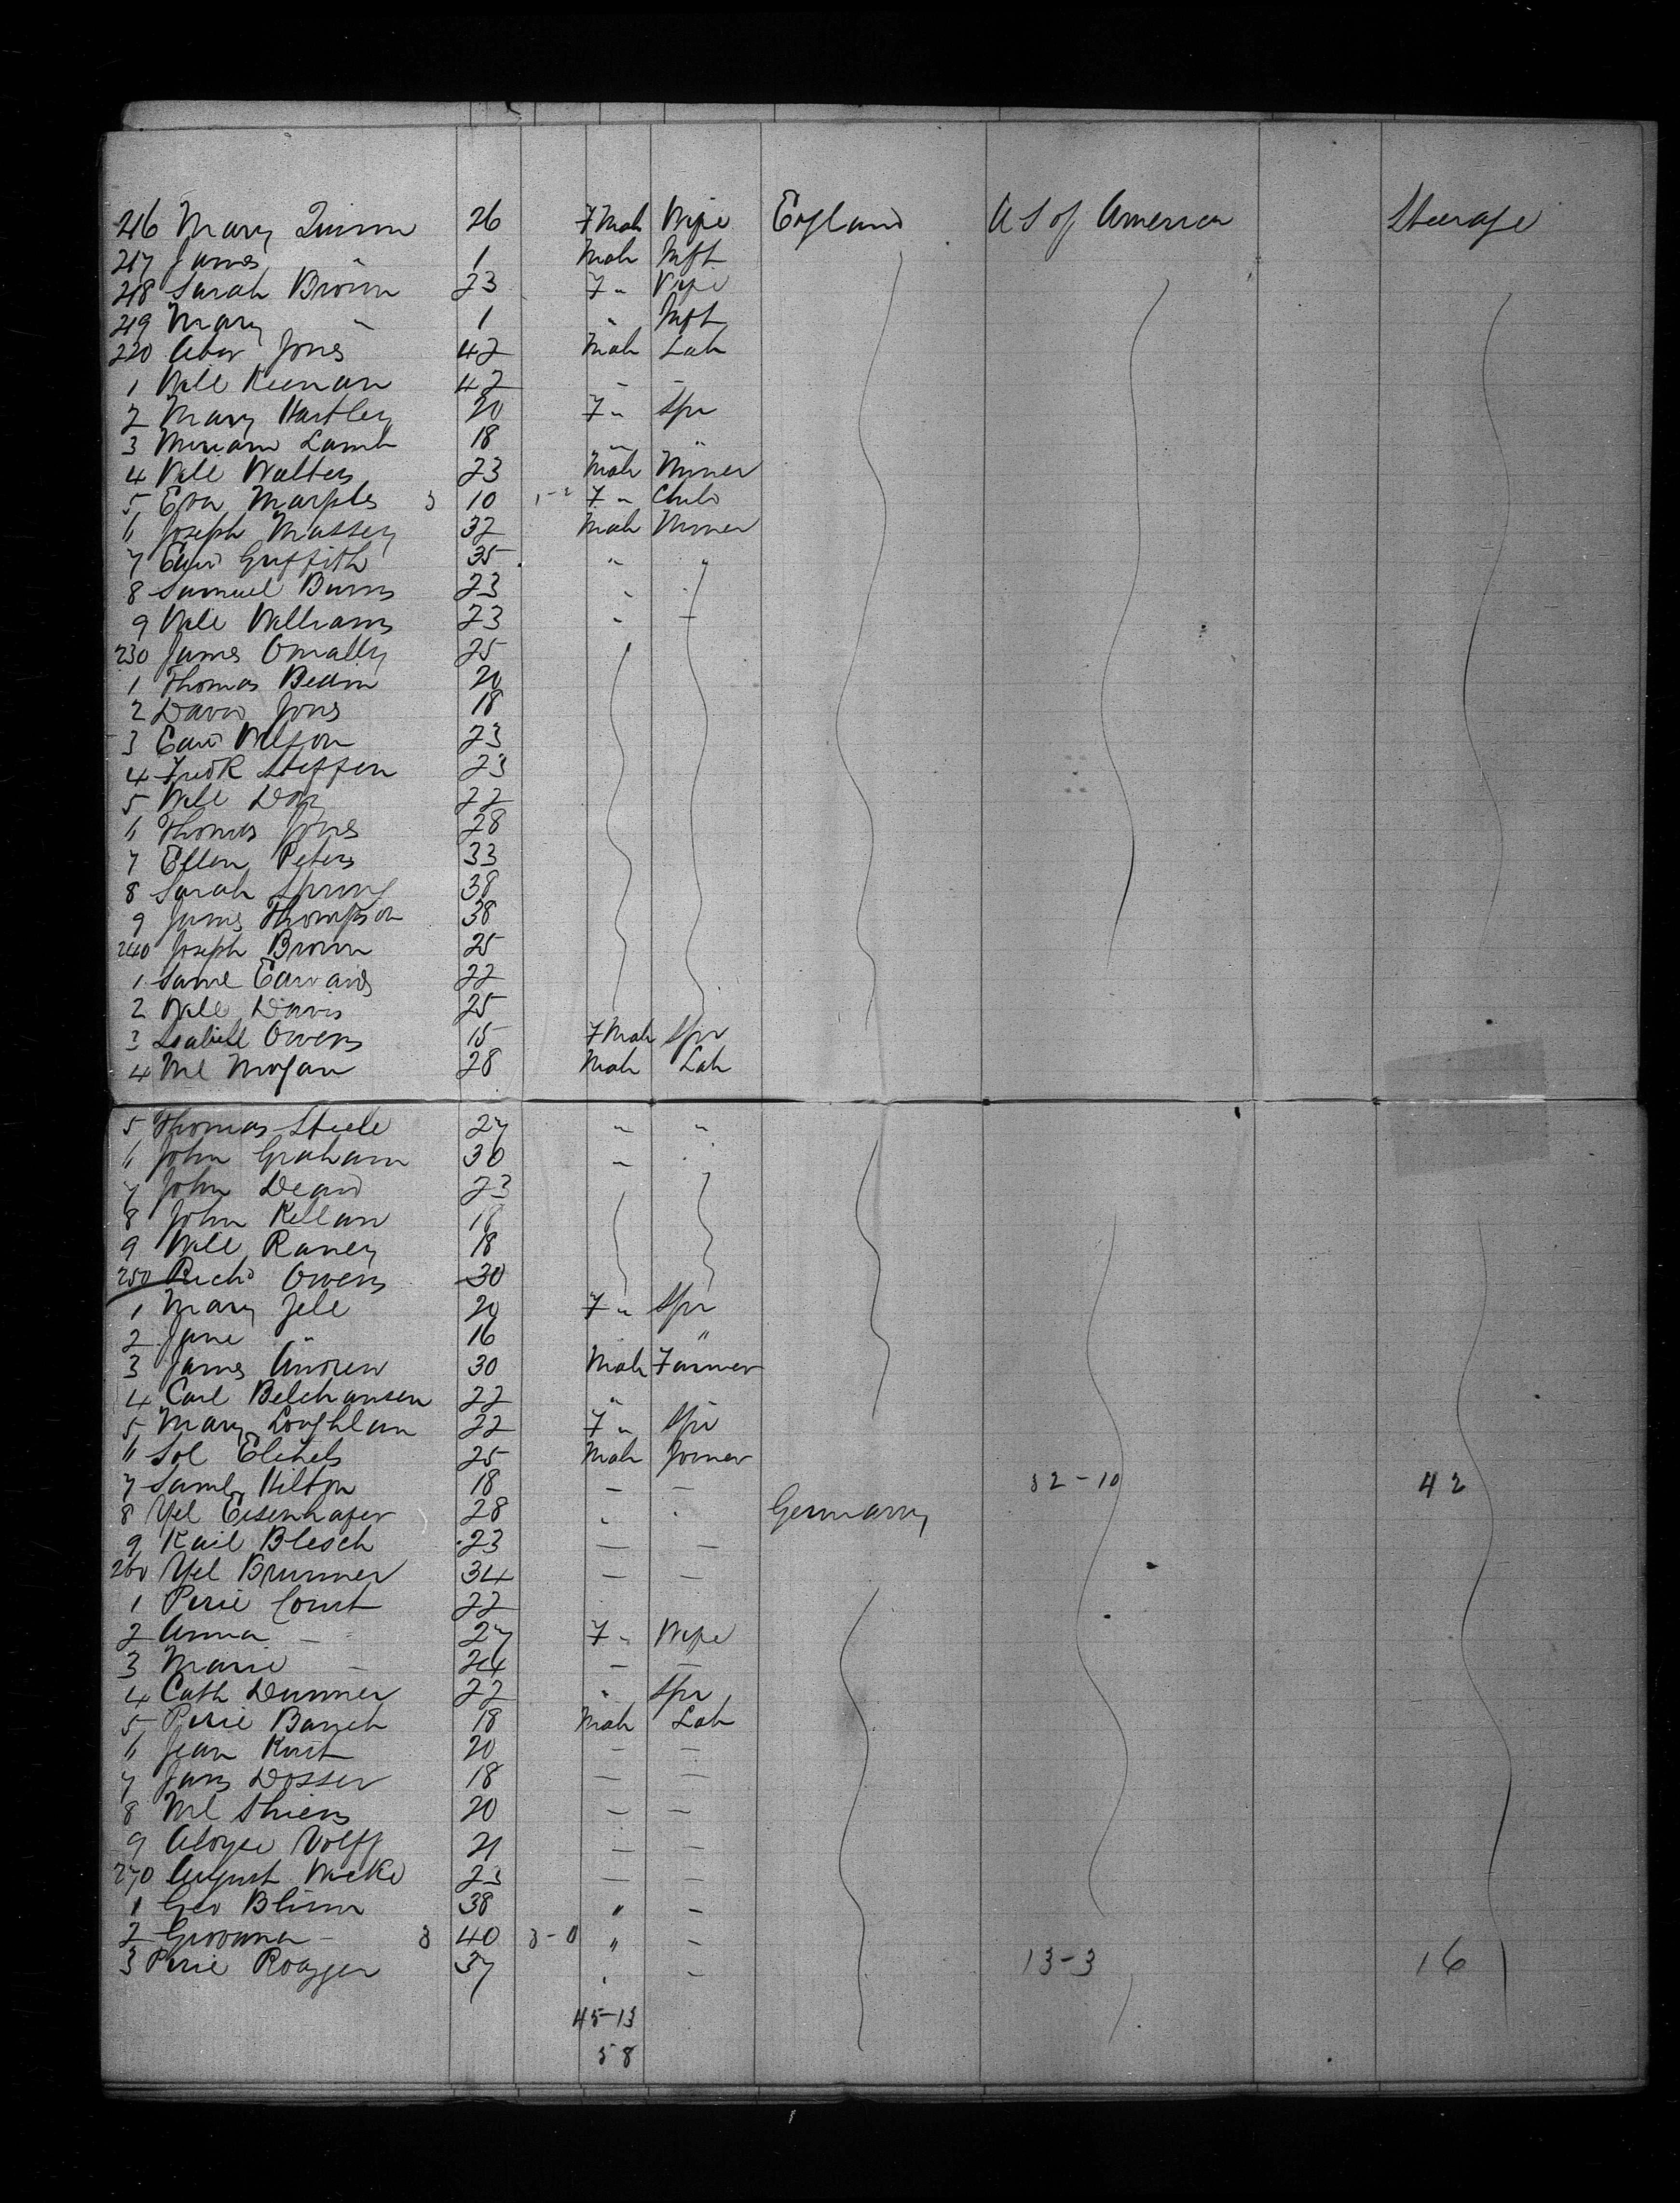 216 Mary Quinn 26 Fmale Wife England U S of America Steerage
217 James " 1 Male Inft
218 Sarah Brown 23 F " Wife
219 Mary " 1 " Inft
220 Jones 42 Male Lab
1 Will Keenan 42 " "
2 Mary Hartley 20 F " Spr
3 Miriam Lamb 18 " "
4 Will Walters 23 Male Miner
5 Eva Marples 3 10 F " Child
6 Joseph Massey 32 Male Miner
7 Edwd Griffith 35 " "
8 Samuel Burns 23 "
9 Will Williams 23 " "
230 James Omally 25
1 Thomas 20
2 David Jones 18
3 Edwd Wilson 23
4 Fredk Steffen 23
5 Will Day 22
6 Thomas Jones 28
7 Ellen Peters 33
8 Sarah Spring 38
9 James Thompson 38
240 Joseph Brown 25
1 Saml Edwards 22
2 Will Davis 25
3 Isabell Owens 15 Fmale Spr
4 Ml Morgan 28 Male Lab
5 Thomas Steele 27 " "
6 John Graham 30 " "
7 John 23
8 John Kellan 18
9 Will Raney 18
250 Richd Owens 30
1 Mary Jell 20 F " Spr
2 Jane " 16 " "
3 James Andrew 30 Male Farmer
4 Carl Belchansen 22 "
5 Mary Loughlan 22 F " Spr
6 Sol 25 Male Joiner
7 Saml Hilton 18 — — 32-10 42
8 Eisenhafer 28 " " Germany
9 Karl Blesch 23 — —
260 Brunner 34 — —
1 Perie Court 22
2 Anna — 27 F " Wife
3 Marie — 24 — —
4 Cath Dummer 22 " Spr
5 Perie 18 Male Lab
6 Jean Kurt 20 — —
7 Dosser 18 — —
8 Ml Thiens 20 — —
9 Aloyse Wolff 21 — —
270 August 23 — —
1 Geo Blum 38 " —
2 — 3 40 3-0 " —
3 Perie 37 " — 13-3 16
45-13
58